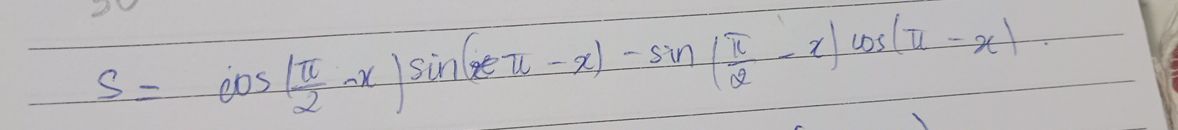 S = cos(π/2 - x) sin(π - x) - sin(π/2 - x) cos(π - x).